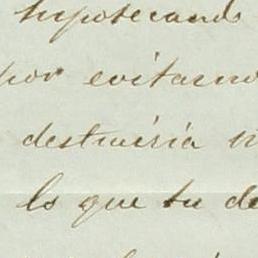 hypotecando
por evitarno
destruiria
lo que tu de